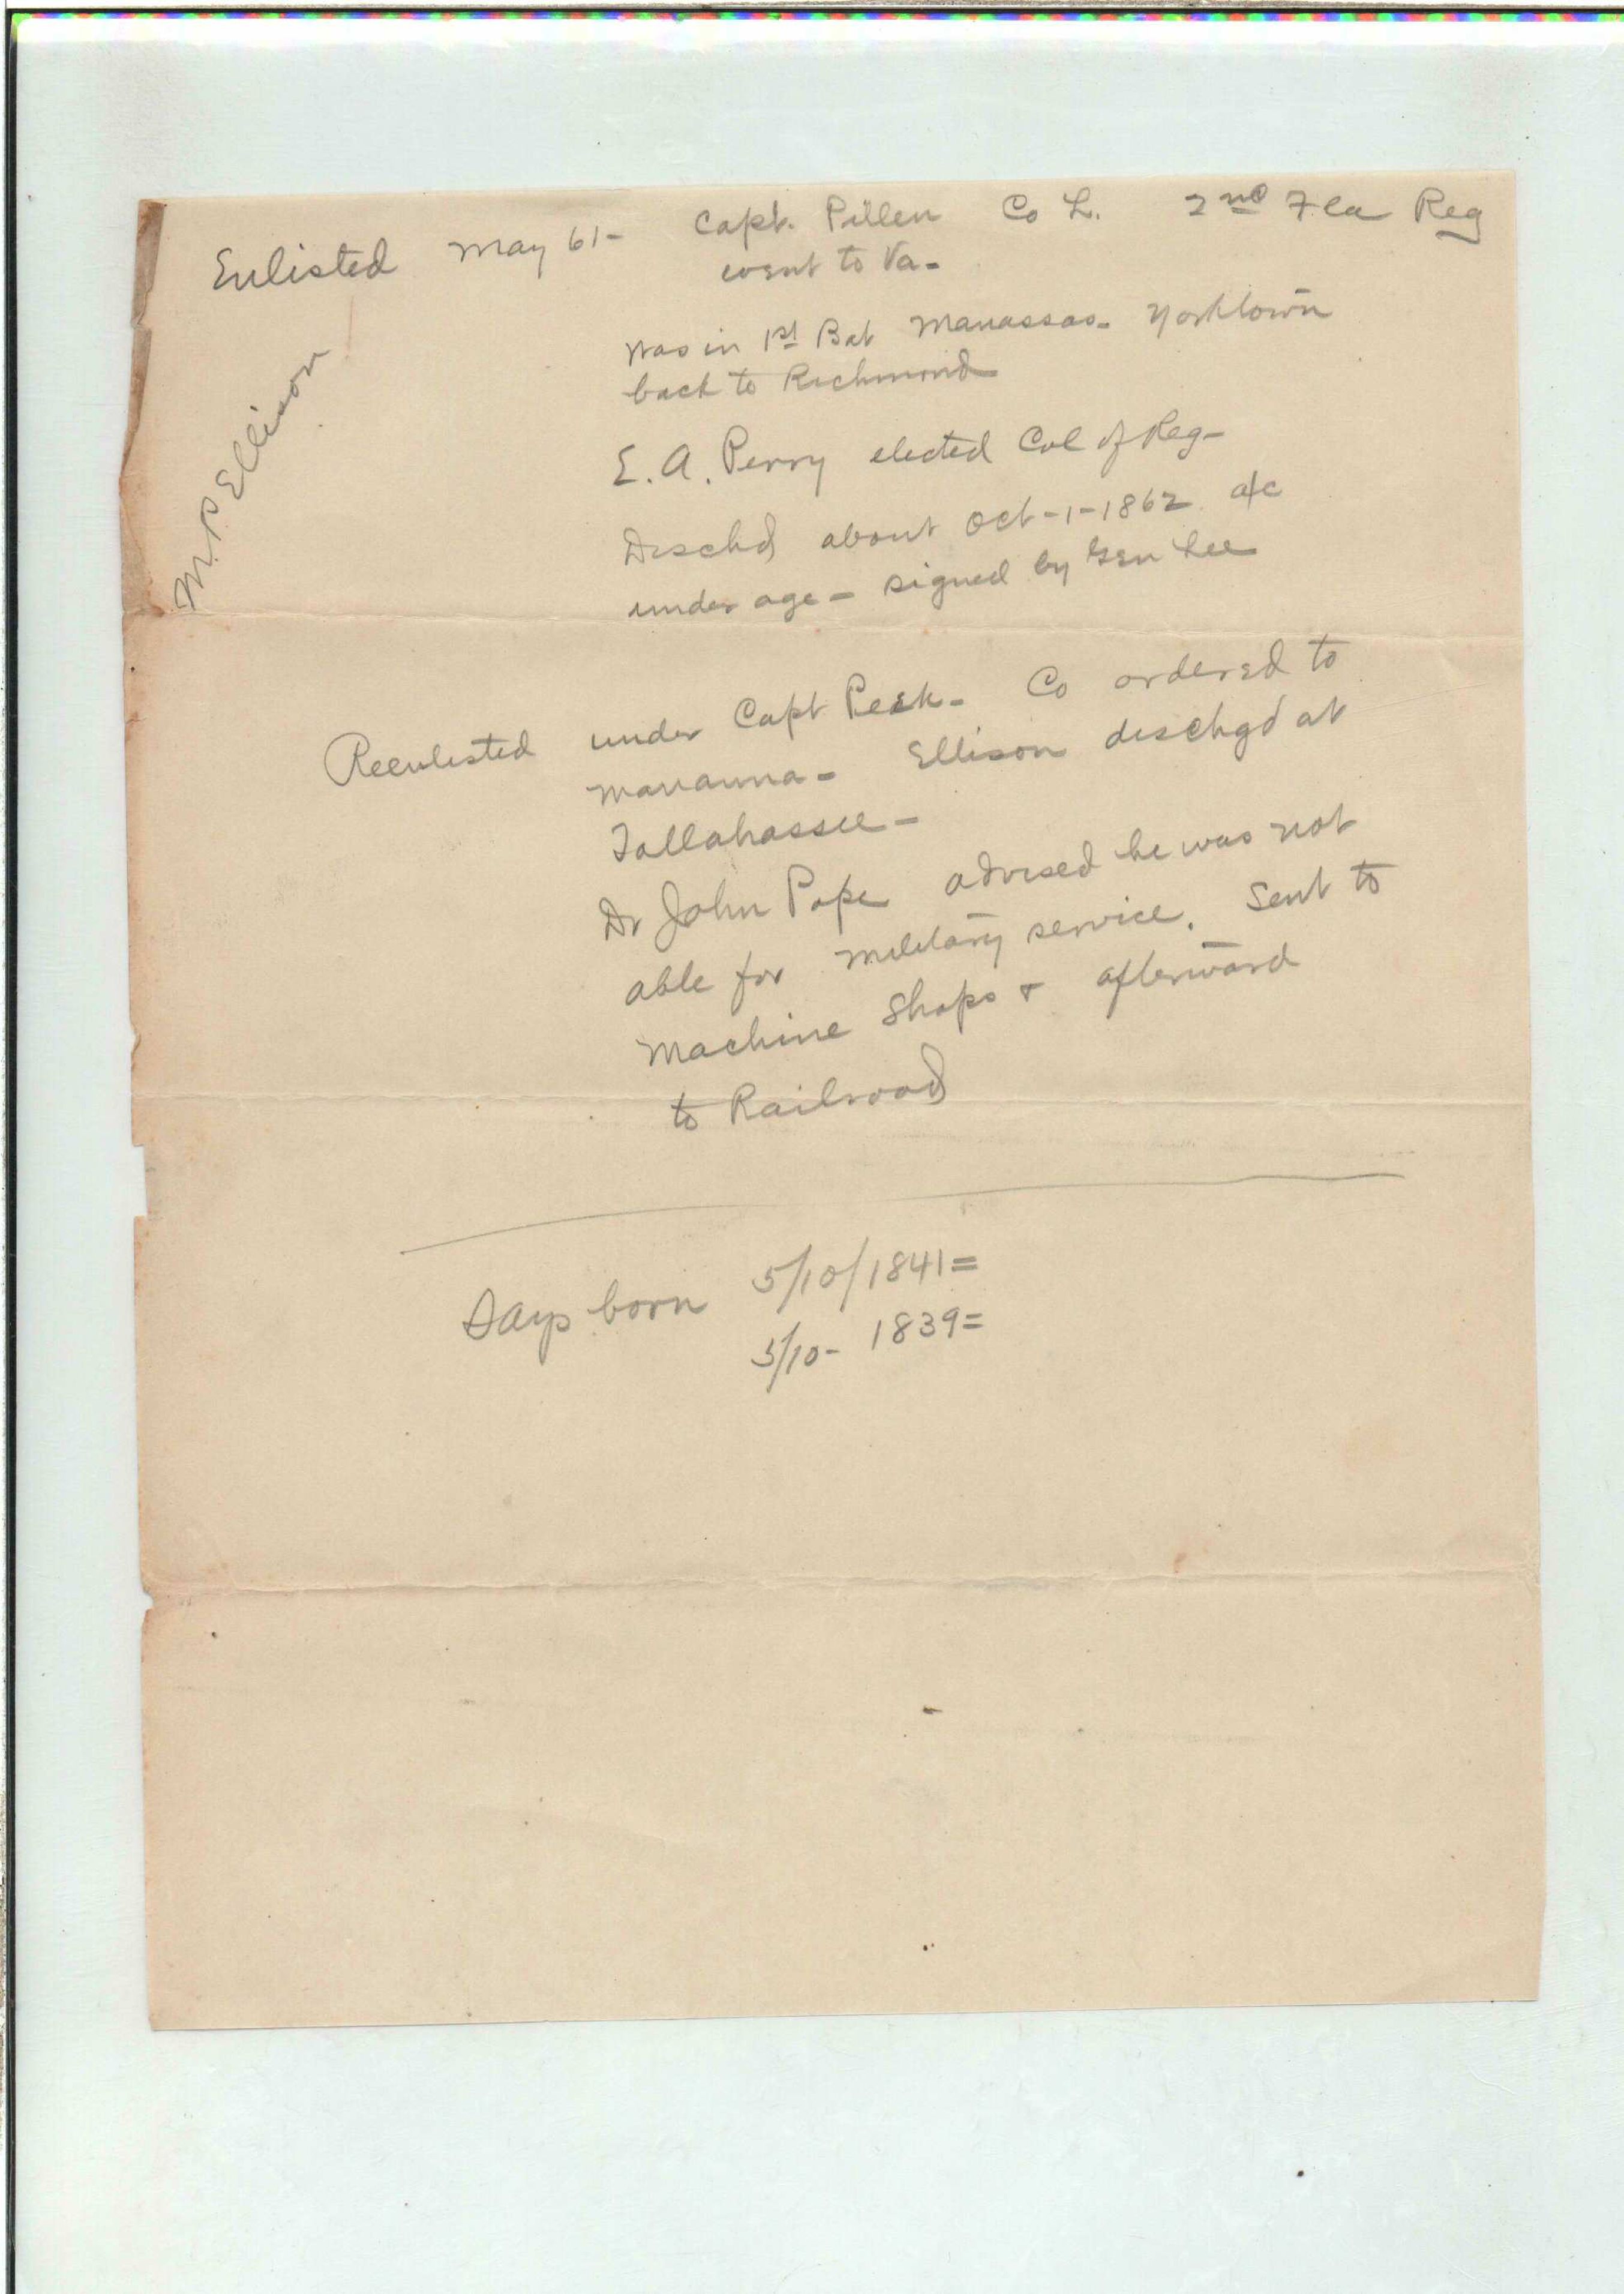 Enlisted May 61- Capt. Pillen Co L. 2nd Fla Reg
went to Va-
was in 1st Bat Manassas- Yorktown
back to Richmond
M.P. Ellison
E. A. Perry elected Col of Reg-
Dischd about Oct-1-1862 a/c
under age - signed by Gen Lee
Reenlisted under Capt Peek- Co ordered to
Marianna- Ellison dischgd at
Tallahassee-
Dr John Pope advised he was not
able for military service. Sent to
Machine Shops & afterward
to Railroad
Says born 5/10/1841=
5/10- 1839=